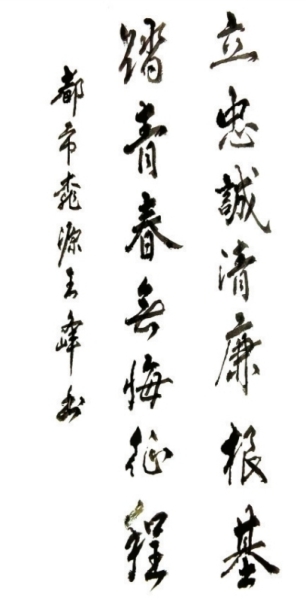 立忠誠清廉根基
踏青春無悔征程
都市靠源王峰书